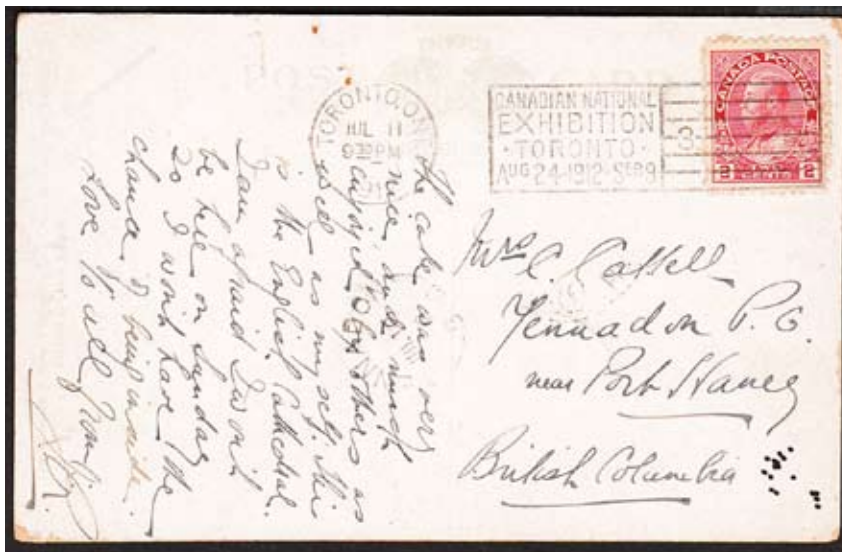 TORONTO, ONT
JUL 11
9 30 PM
CANADIAN NATIONAL
EXHIBITION
· TORONTO ·
AUG 24-1912-SEP 9
3
CANADA POSTAGE
2 CENTS 2
the cake was very
nice and much
enjoyed by others as
well as myself. This
is the English Cathedral.
I am afraid I won't
be here on Sunday
so I won't have the
chance of being inside.
Love to all from
Mrs C. Cassell
Yennadon P.O.
near Port Haney
British Columbia